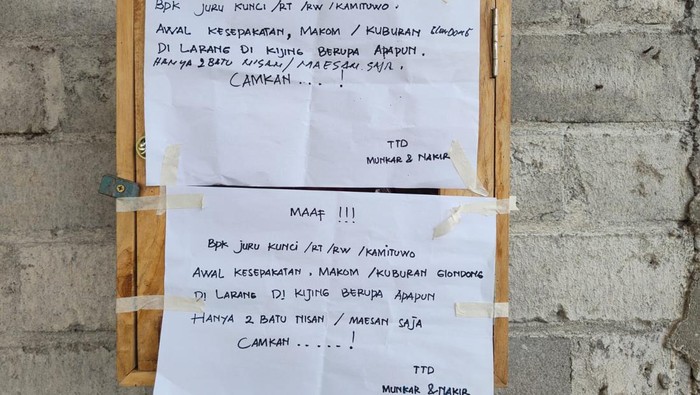 BPK JURU KUNCI /RT /RW /KAMITUWO.
AWAL KESEPAKATAN, MAKOM / KUBURAN GLONDONG
DI LARANG DI KIJING BERUPA APAPUN.
HANYA 2 BATU NISAN / MAESAN SAJA.
CAMKAN . . . . !
TTD
MUNKAR & NAKIR
MAAF !!!
BPK JURU KUNCI /RT /RW /KAMITUWO
AWAL KESEPAKATAN . MAKOM / KUBURAN GLONDONG
DI LARANG DI KIJING BERUPA APAPUN
HANYA 2 BATU NISAN / MAESAN SAJA
CAMKAN . . . . . !
TTD
MUNKAR & NAKIR